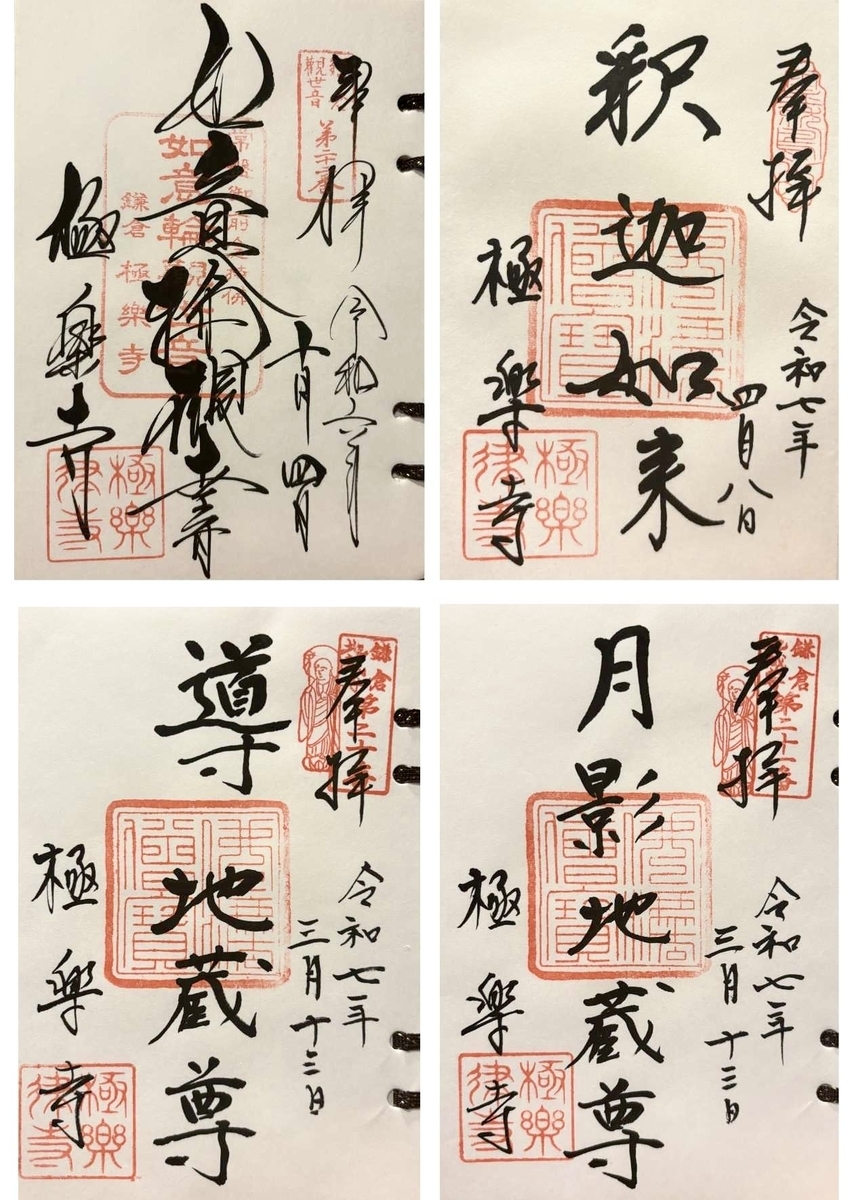 奉拝
令和六年
十月四日
如意輪観世音
極楽寺
観世音
第二十二番
如意輪観世音
鎌倉 極樂寺
極樂律寺
奉拝
令和七年
四月八日
釈迦如来
極楽寺
佛法僧寶
極樂律寺
奉拝
令和七年
三月十三日
導地蔵尊
極楽寺
鎌倉
佛法僧寶
極樂律寺
奉拝
令和七年
三月十三日
月影地蔵尊
極楽寺
鎌倉
第二十一番
佛法僧寶
極樂律寺